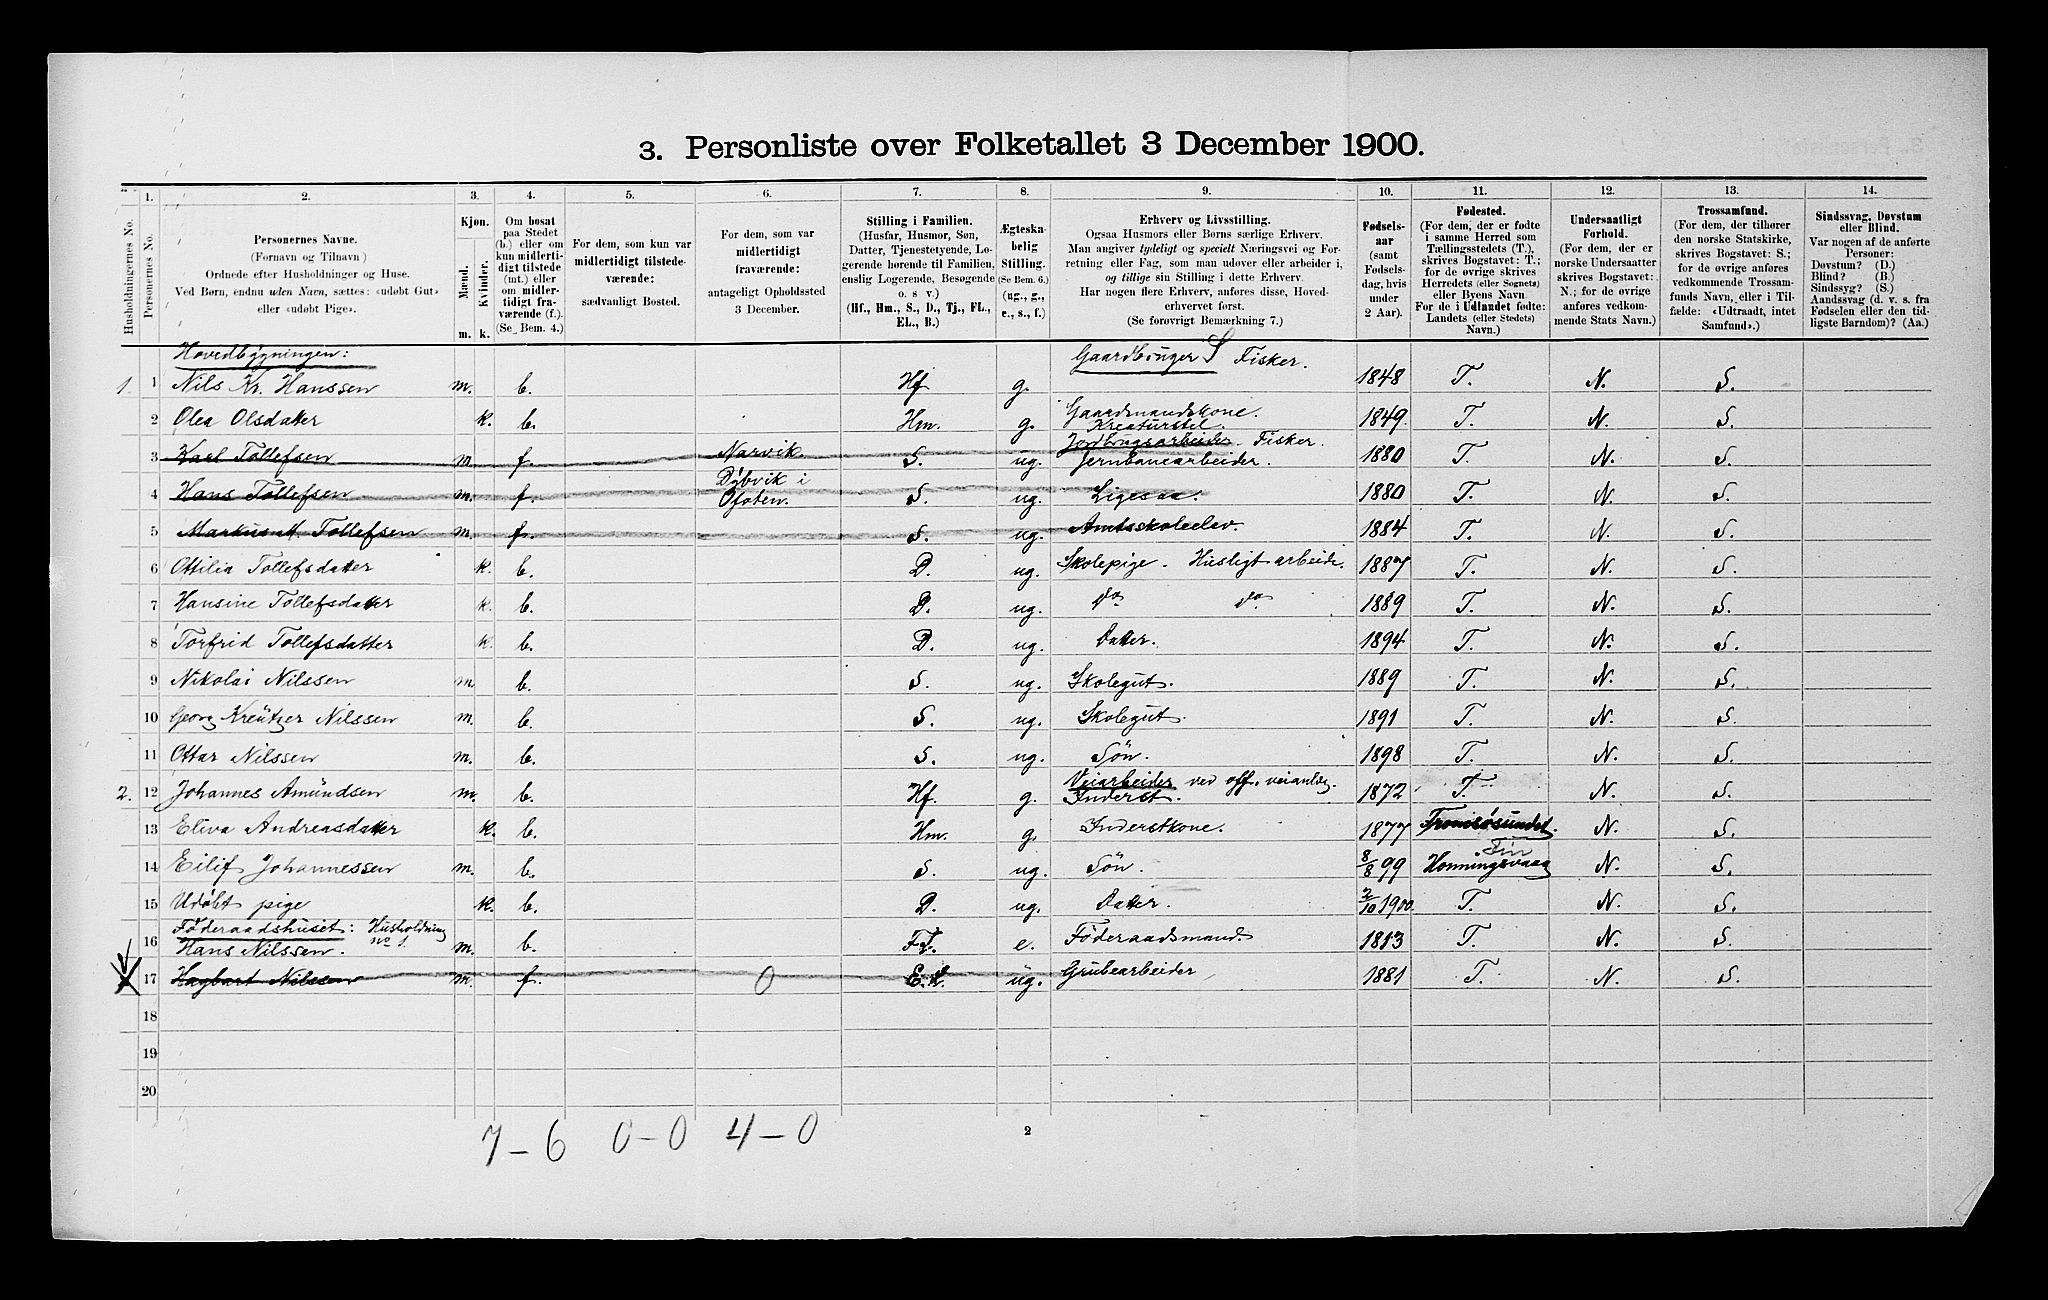 3. Personliste over Folketallet 3 December 1900.
1. 2. 3. 4. 5. 6. 7. 8. 9. 10. 11. 12. 13. 14.
Husholdningernes No.
Personernes No.
Personernes Navne.
(Fornavn og Tilnavn)
Ordnede efter Husholdninger og Huse.
Ved Børn, endnu uden Navn, sættes: «udøbt Gut»
eller «udøbt Pige».
Kjøn.
Mænd.
Kvinder.
m. k.
Om bosat
paa Stedet
(b.) eller om
kun midlerti-
digt tilstede
(mt.) eller
om midler-
tidigt fra-
værende (f.).
(Se Bem. 4.)
For dem, som kun var
midlertidigt tilstede-
værende:
sædvanligt Bosted.
For dem, som var
midlertidigt
fraværende:
antageligt Opholdssted
3 December.
Stilling i Familien.
(Husfar, Husmor, Søn,
Datter, Tjenestetyende, Lo-
gerende hørende til Familien,
enslig Logerende, Besøgende
o. s. v.)
(Hf., Hm., S., D., Tj., FL.,
EL., B.)
Ægteska-
belig
Stilling.
(Se Bem. 6.)
(ug., g.,
e., s., f.)
Erhverv og Livsstilling.
Ogsaa Husmors eller Børns særlige Erhverv.
Man angiver tydeligt og specielt Næringsvei og For-
retning eller Fag, som man udover eller arbeider i,
og tillige sin Stilling i dette Erhverv.
Har nogen flere Erhverv, anføres disse, Hoved-
erhvervet først.
(Se forøvrigt Bemærkning 7.)
Fødsels-
aar
(samt
Fødsels-
dag, hvis
under
2 Aar).
Fødested.
(For dem, der er fødte
i samme Herred som
Tællingsstedets (T.),
skrives Bogstavet: T.;
for de øvrige skrives
Herredets (eller Sognets)
eller Byens Navn.
For de i Udlandet fødte:
Landets (eller Stedets)
Navn.)
Undersaatligt
Forhold.
(For dem, der er
norske Undersaatter
skrives Bogstavet:
N.; for de øvrige
anføres vedkom-
mende Stats Navn.)
Trossamfund.
(For dem, der tilhører
den norske Statskirke,
skrives Bogstavet: S.;
for de øvrige anføres
vedkommende Trossam-
funds Navn, eller i Til-
fælde: «Udtraadt, intet
Samfund».)
Sindssvag, Døvstum
eller Blind.
Var nogen af de anførte
Personer:
Døvstum? (D.)
Blind? (B.)
Sindssyg? (S.)
Aandssvag (d. v. s. fra
Fødselen eller den tid-
ligste Barndom)? (Aa.)
Hovedbygningen: Gaardbruger S Fisker.
1. 1 Nils Kr. Hanssen m. b. Hf g. 1848 T. N. S.
2 Olea Olsdatter k. b. Hm. g. Gaardmandskone. Kreaturstel. 1849. T. N. S.
Jordbrugsarbeider. Fisker.
3 Karl Tollefsen m. f. Narvik. S. ug. Jernbanearbeider. 1880 T. N. S.
Dybvik i
4 Hans Tollefsen m. f. Ofoten. S. ug. Ligesaa. 1880 T. N. S.
5 Markus M. Tollefsen m. f. S. ug. Amtsskoleelev. 1884 T. N. S.
6 Ottilia Tollefsdatter k. b. D. ug. Skolepige. Husligt arbeide. 1887 T. N. S.
7 Hansine Tollefsdatter k. b. D. ug. do do 1889 T. N. S.
8 Torfrid Tollefsdatter k. b. D. ug. Datter. 1894 T. N. S.
9 Nikolai Nilssen m. b. S. ug. Skolegut. 1889 T. N. S.
10 Georg Kreützer Nilssen m. b. S. ug. Skolegut. 1891 T. N. S.
11 Ottar Nilssen m. b. S. ug. Søn. 1898 T. N. S.
Veiarbeider ved off. veianlæg.
2. 12 Johannes Amundsen m. b. Hf. g. Inderst. 1872 T. N. S.
13 Eliva Andreasdatter k. b. Hm. g. Inderstkone. 1877 Tromsøsundet. N. S.
14 Eilif Johannessen m. b. S. ug. Søn. 8/8 99 Honningsvaag N. S.
15 Udøbt pige k. b. D. ug. Datter. 2/10 1900. T. N. S.
Føderaadshuset: Husholdning no 1.
16 Hans Nilssen. m. b. e. Føderaadsmand. 1813 T. N. S.
17 Hagbart Nilssen m. f. 0 ug. Grubearbeider 1881 T. N. S.
18
19
20
7 - 6 0 - 0 4 - 0
2